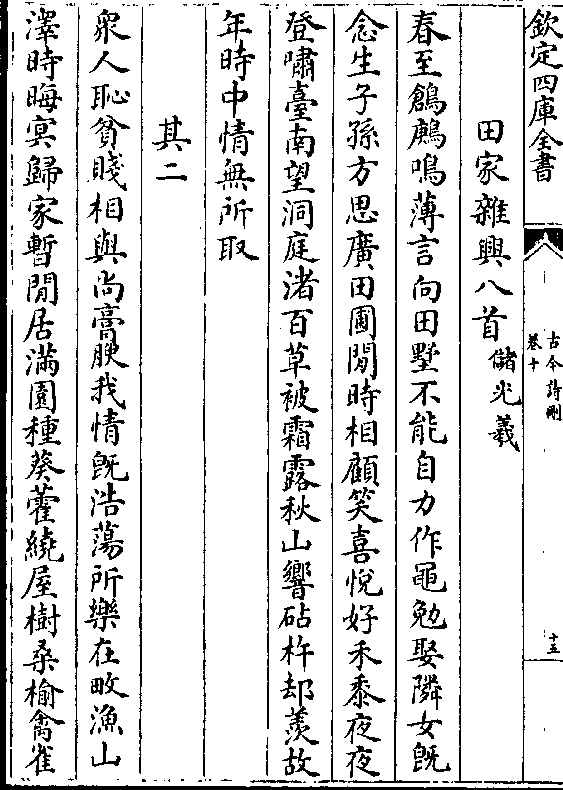 欽定四庫全書
古今詩刪
卷十
十五
田家雜興八首 儲光羲
春至鶬鶊鳴薄言向田墅不能自力作黽勉娶隣女旣
念生子孫方思廣田圃閒時相顧笑喜悅好禾黍夜夜
登嘯臺南望洞庭渚百草被霜露秋山響砧杵却羡故
年時中情無所取
其二
衆人恥貧賤相與尚膏腴我情旣浩蕩所樂在畋漁山
澤時晦冥歸家暫閒居滿園種葵藿繞屋樹桑榆禽雀